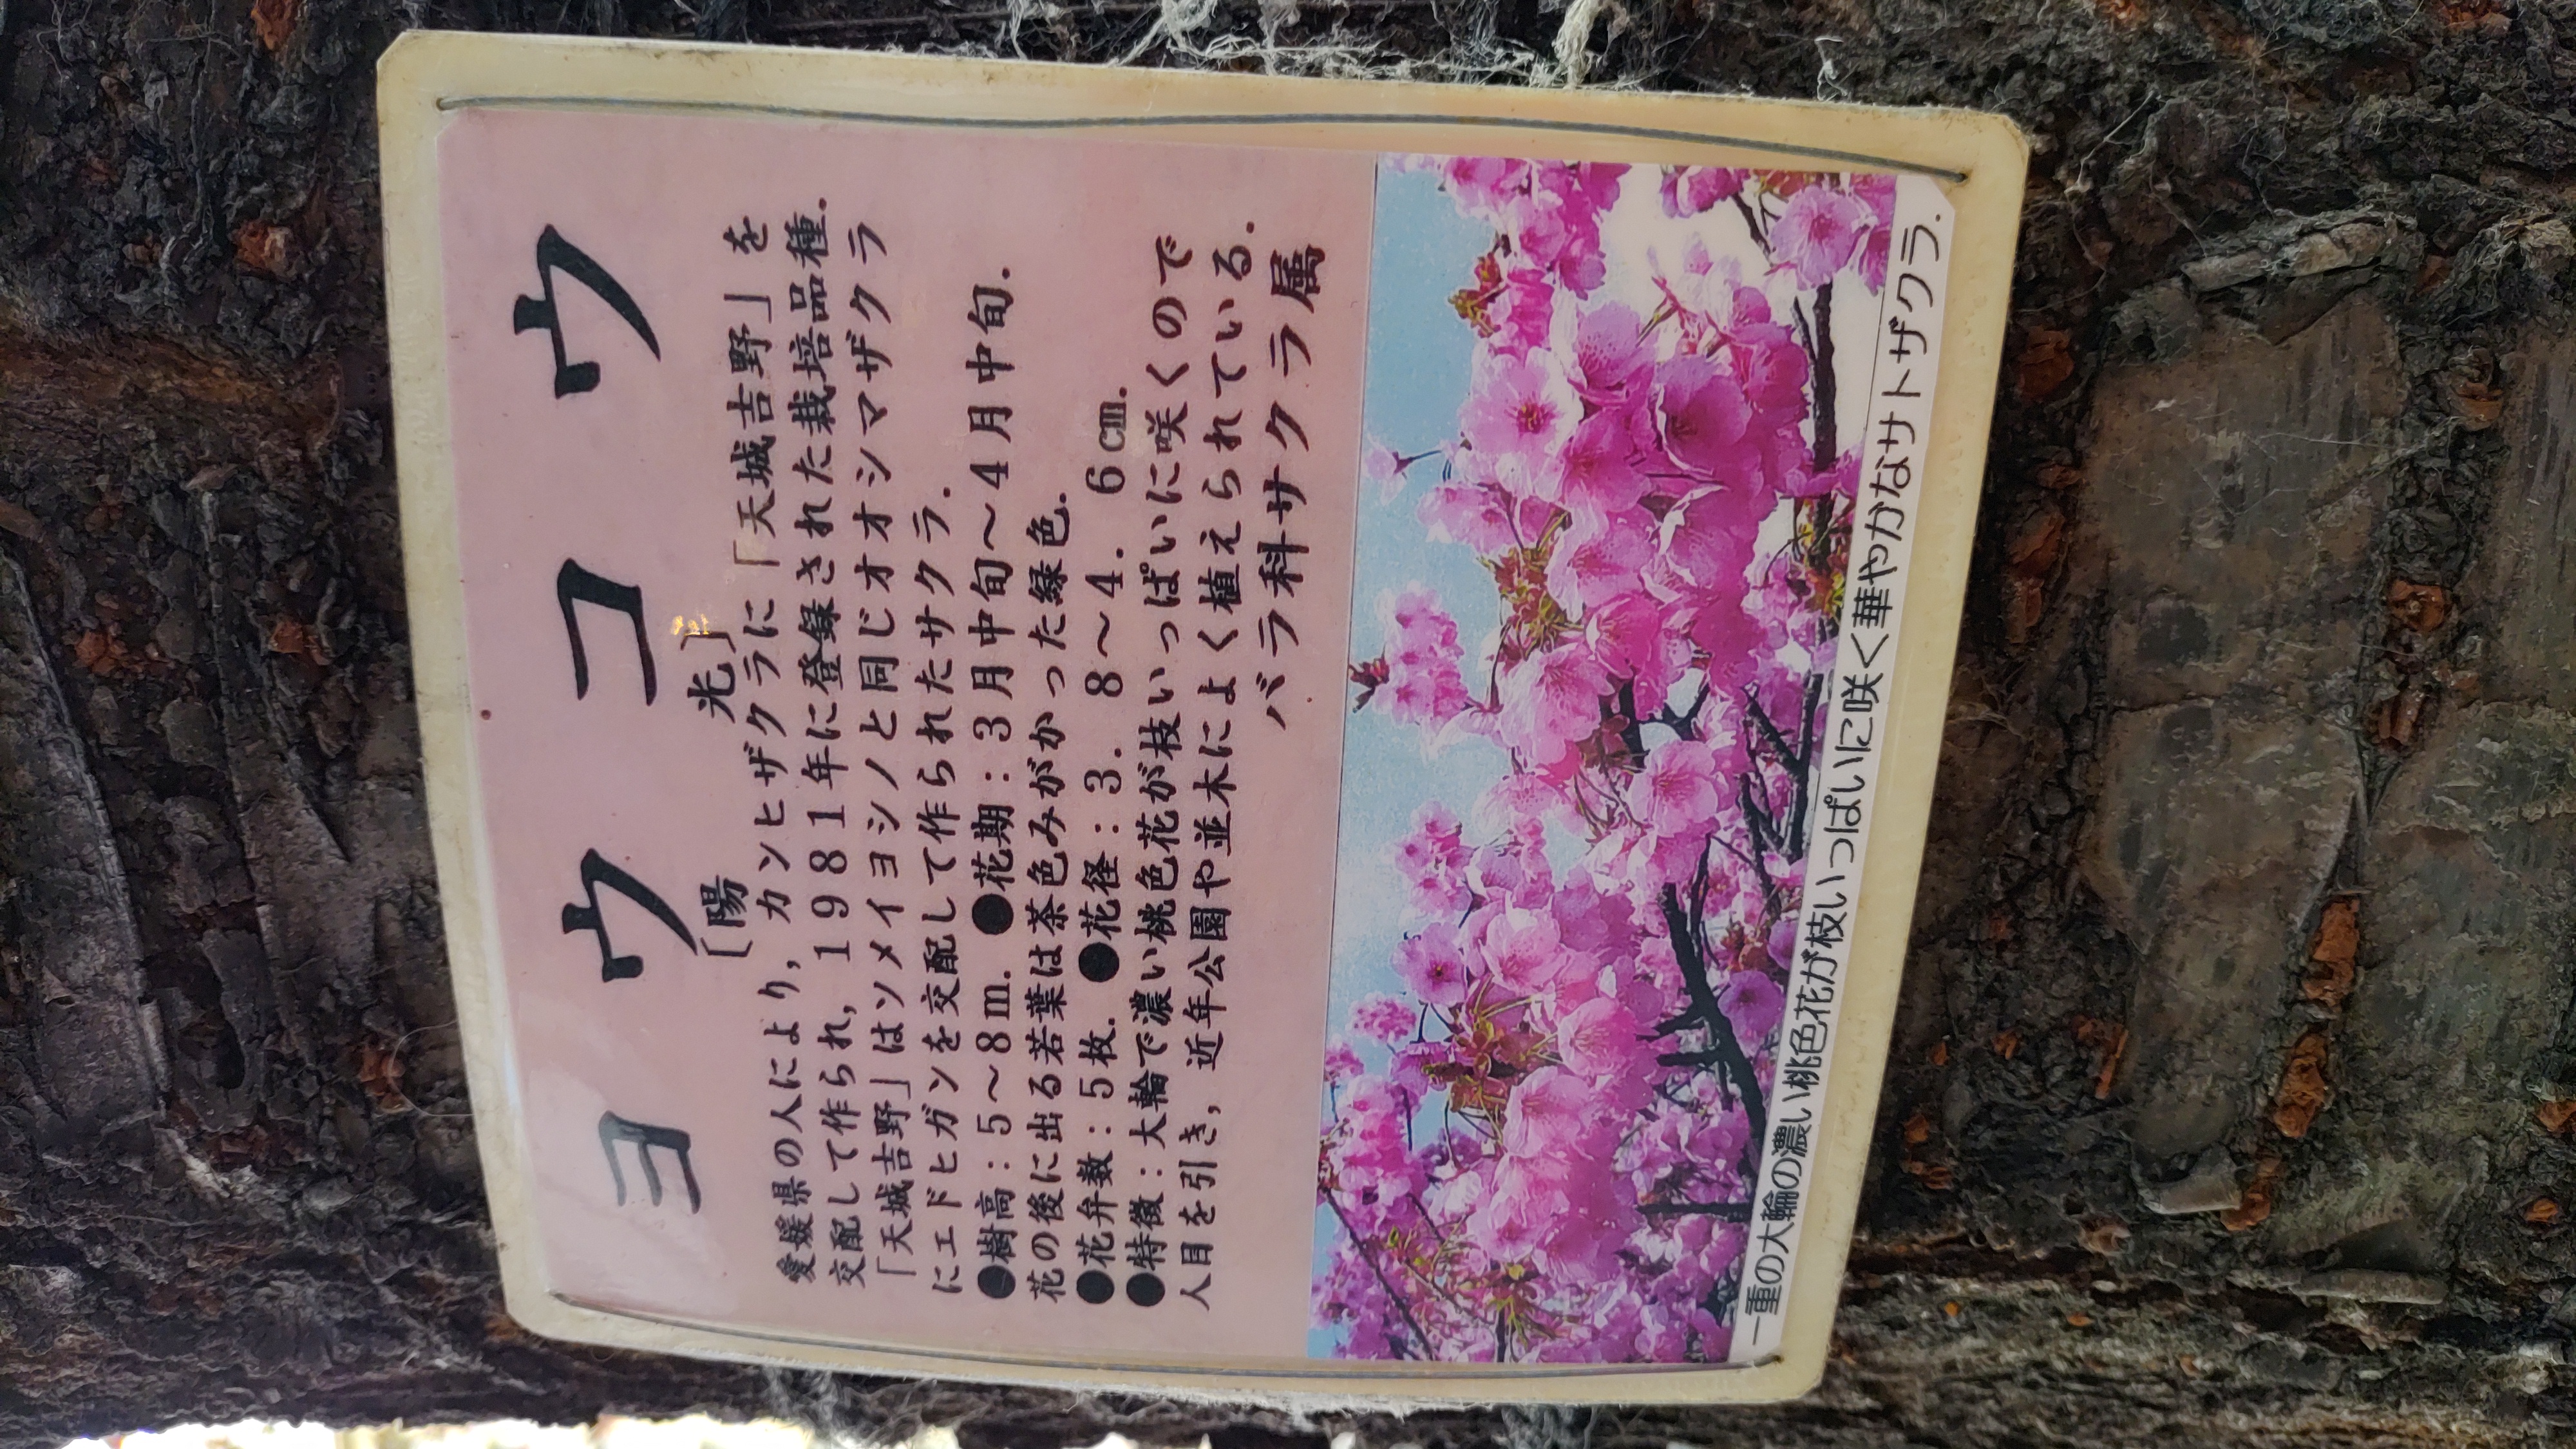 ヨウコウ
〔陽　光〕
愛媛県の人により，カンヒザクラに「天城吉野」を
交配して作られ，1981年に登録された栽培品種．
「天城吉野」はソメイヨシノと同じオオシマザクラ
にエドヒガンを交配して作られたサクラ．
●樹高：5～8m．●花期：3月中旬～4月中旬．
花の後に出る若葉は茶色みがかった緑色．
●花弁数：5枚．●花径：3．8～4．6cm．
●特徴：大輪で濃い桃色花が枝いっぱいに咲くので
人目を引き，近年公園や並木によく植えられている．
バラ科サクラ属
一重の大輪の濃い桃色花が枝いっぱいに咲く華やかなサトザクラ．